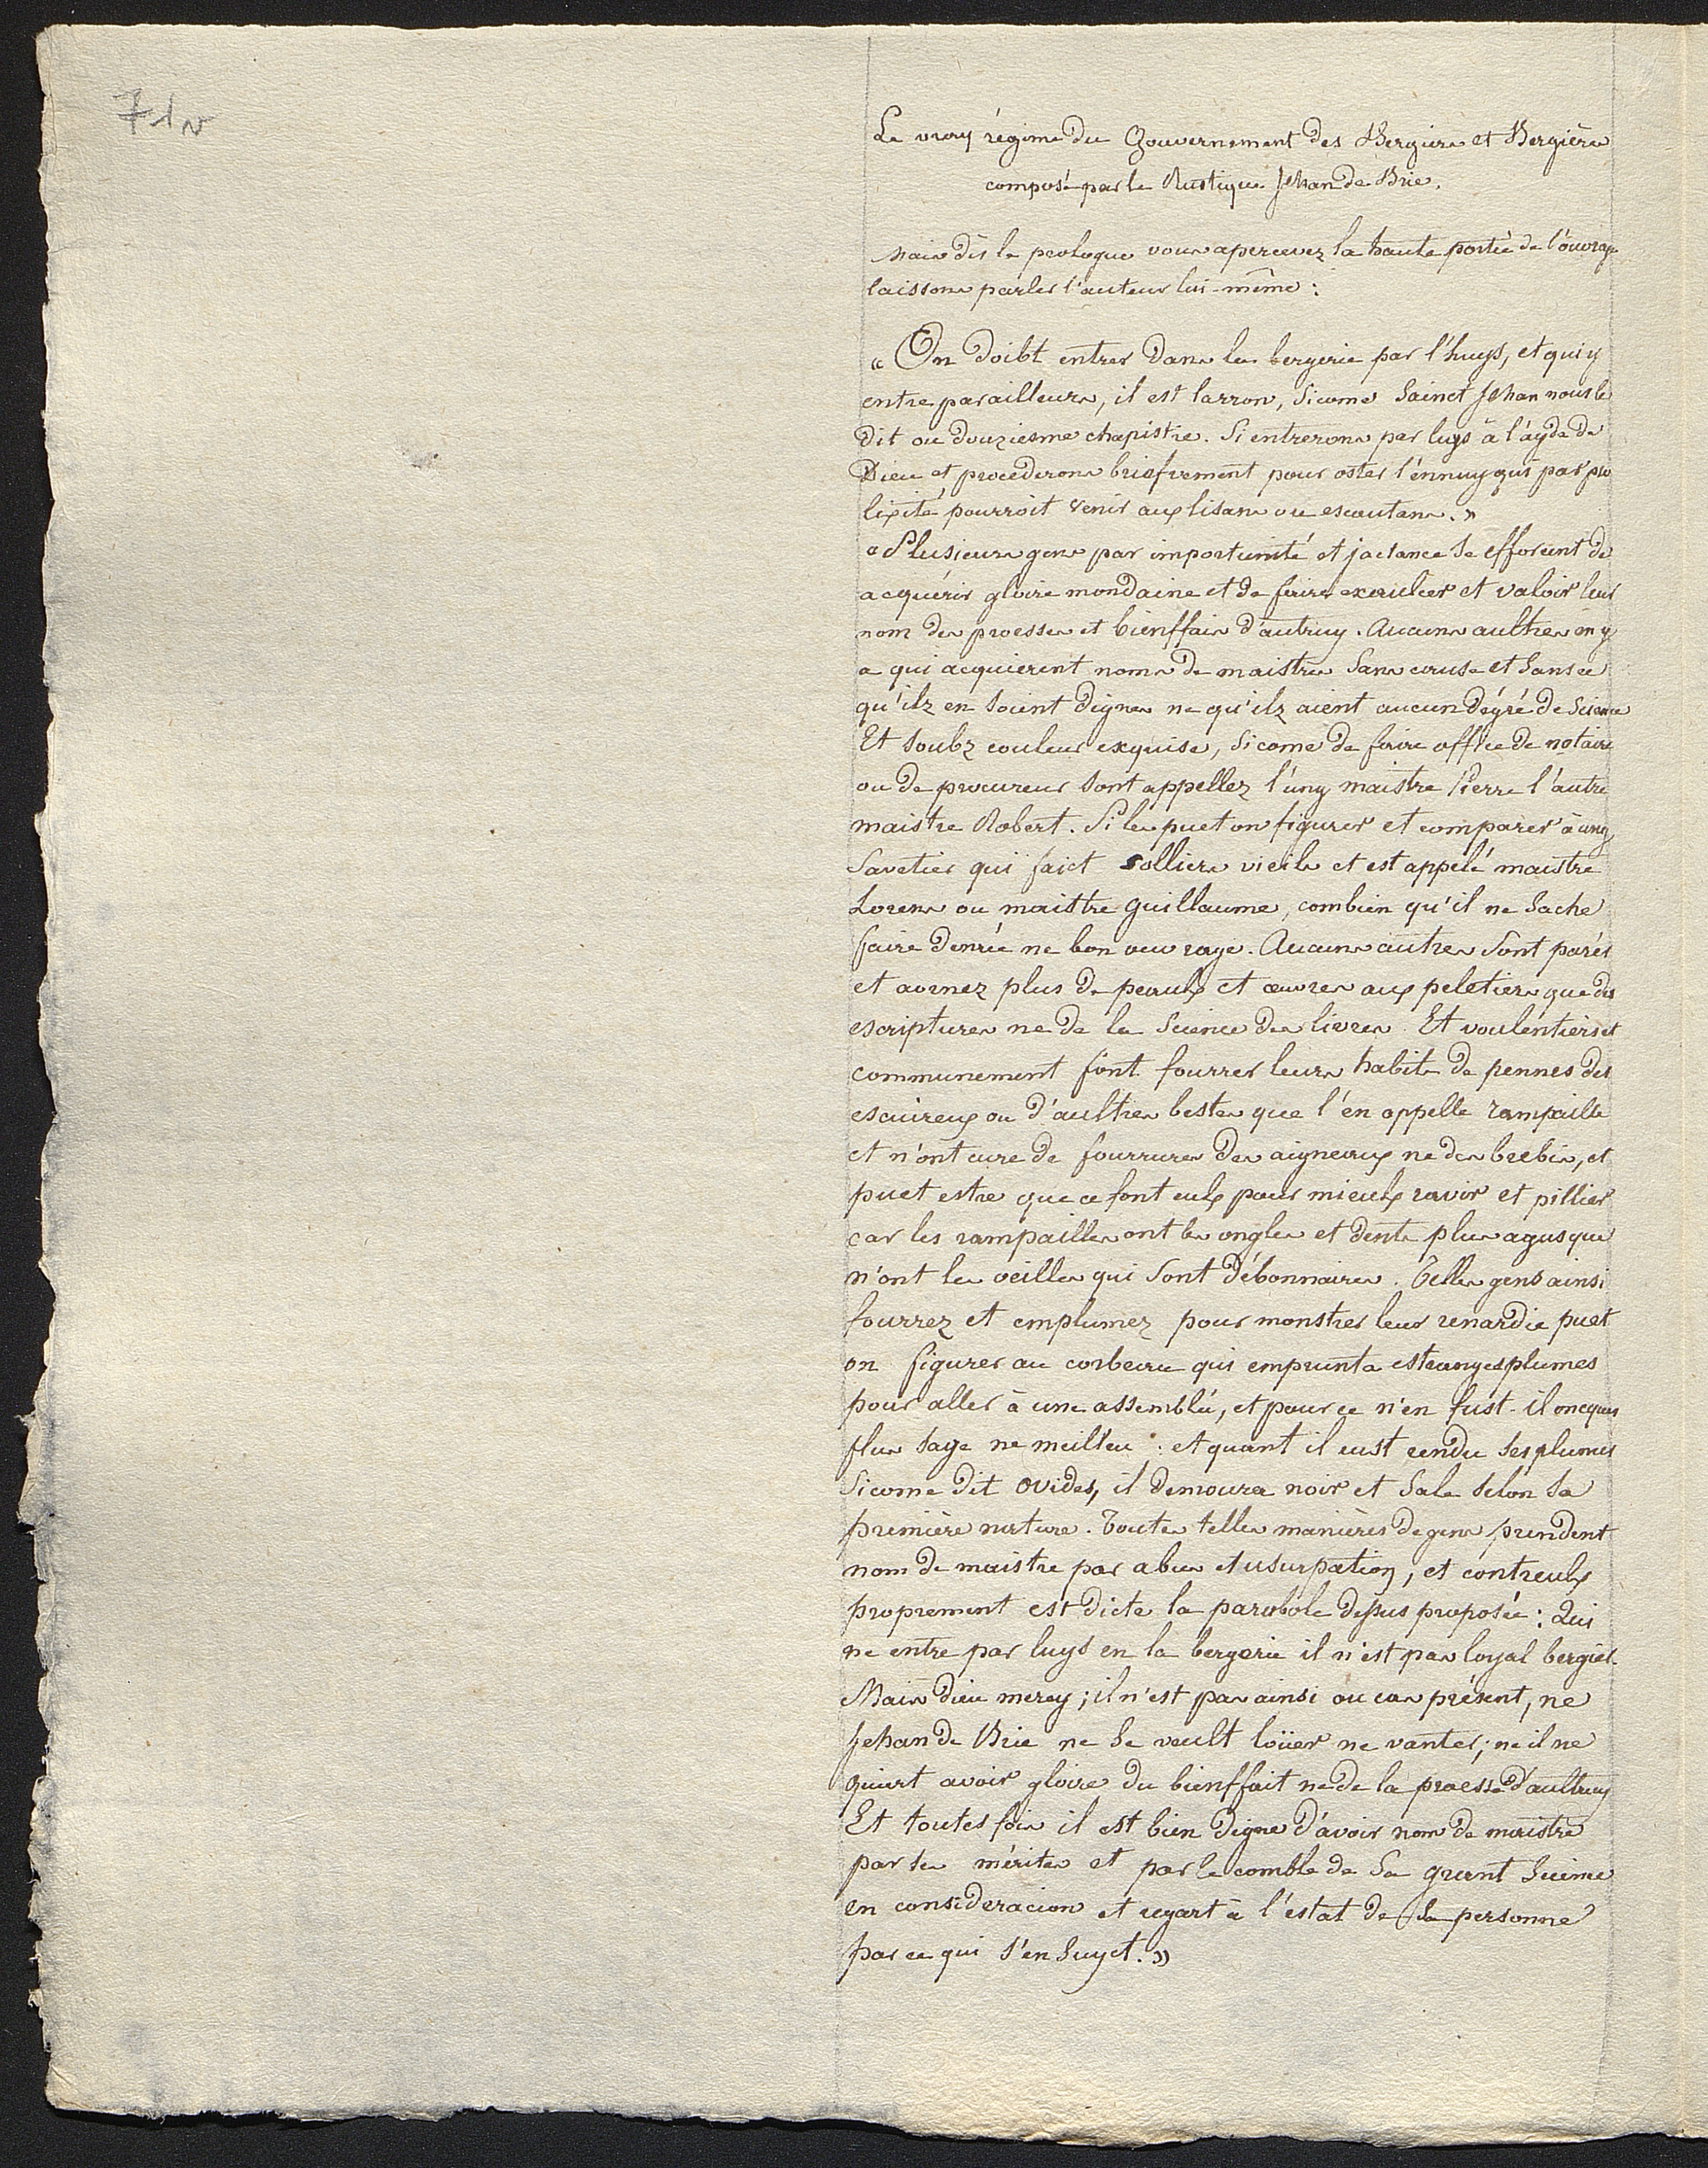 71v
Le vray régime du Gouvernement des Bergiers et Bergières
composé par le Rustique Jehan de Brie.
Mais dès le prologue vous apercevez la haute portée de l'ouvrage
laissons parler l'auteur lui-même :
« On doibt entrer dans la bergerie par l'huys, et qui y
entre par ailleurs, il est larron, sicome Sainct Jehan nous le
dit ou douziesme chapistre. Si entrerons par luys à l'ayde de
Dieu et procederons briefvement pour oster l'énnuy qui par pro
lixité pourroit venir aux lisans ou escoutans. »
« Plusieurs gens par importunité et jactance se efforcent de
acquérir gloire mondaine et de faire exaulcer et valoir leur
nom des proesses et bienffais d'autruy. Aucuns aultres en y
a qui acquierent noms de maistres sans cause et sans ce
qu'ilz en soient dignes ne qu'ilz aient aucun dégré de Science
Et soubz couleur exquise, sicome de faire office de notaire
ou de procureur sont appellez l'ung maistre Pierre l'autre
maistre Robert. Si les puet on figurer et comparer à ung
Savetier qui faict solliers vieils et est appelé maistre
Lorens ou maistre Guillaume, combien qu'il ne sache
faire denrée ne bon ouvrage. Aucuns autres sont parés
et aornez plus de peaulx et œuvres aux peletiers que des
escriptures ne de la Science des livres. Et voulentiers et
communement font fourrer leurs habits de pennes des
escureux ou d'aultres bestes que l'en appelle rampaille
et n'ont cure de fourrures des aigneaux ne des brebis, et
puet estre que ce font eulx pour mieulx ravir et pillier
car les rampailles ont les ongles et dents plus agus que
n'ont les oeilles qui sont débonnaires. Telles gens ainsi
fourrez et emplumez pour monstrer leur renardie puet
on figurer au corbeau qui emprunta estranges plumes
pour aller à une assemblée, et pour ce n'en fust-il oncques
plus sage ne meilleu : et quant il eust rendu ses plumes
Sicome dit Ovides, il demoura noir et sale selon sa
première nature. Toutes telles manières de gens prendent
nom de maistre par abus et usurpation, et contre eulx
proprement est dicte la parabole dessus proposée : Qui
ne entre par luys en la bergerie il n'est pas loyal bergier.
Mais Dieu mercy ; il n'est pas ainsi ou cas présent, ne
Jehan de Brie ne se veult loüer ne vanter ; ne il ne
quiert avoir gloire du bienffait ne de la proesse d'aultruy
Et toutes fois il est bien digne d'avoir nom de maistre
par ses mérites et par le comble de sa grant Science
en consideracion et regart à l'estat de sa personne
par ce qui s'en suyct. »